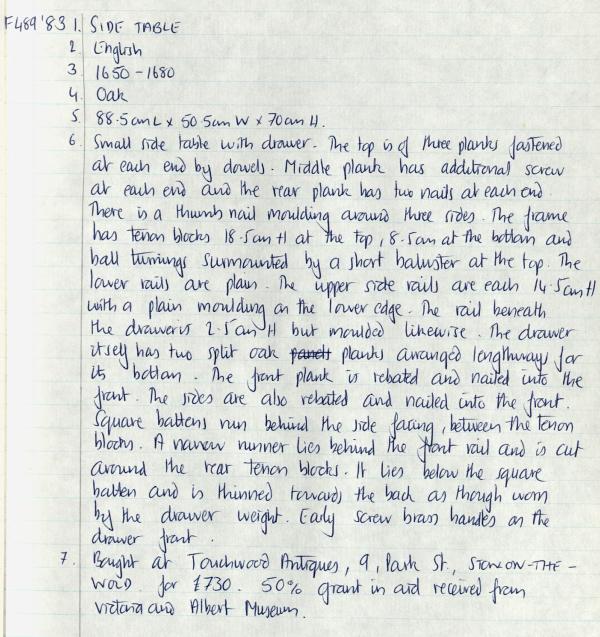 F489 '83 1. SIDE TABLE
2. English
3. 1650 - 1680
4. Oak
5. 88.5cm L x 50.5cm W x 70cm H.
6. Small side table with drawer. The top is of three planks fastened
at each end by dowels. Middle plank has additional screw
at each end and the rear plank has two nails at each end.
There is a thumb nail moulding around three sides. The frame
has tenon blocks 18.5cm H at the top, 8.5cm at the bottom and
ball turnings surmounted by a short baluster at the top. The
lower rails are plain. The upper side rails are each 14.5cm H
with a plain moulding on the lower edge. The rail beneath
the drawer is 2.5cm H but moulded likewise. The drawer
itself has two split oak planks arranged lengthways for
its bottom. The front plank is rebated and nailed into the
front. The sides are also rebated and nailed into the front.
Square battens run behind the side facing, between the tenon
blocks. A narrow runner lies behind the front rail and is cut
around the rear tenon blocks. It lies below the square
batten and is thinned towards the back as though worn
by the drawer weight. Early screw brass handles on the
drawer front.
7. Bought at Touchwood Antiques, 9, Park St., STOW-ON-THE-
WOLD for £730. 50% grant in aid received from
Victoria and Albert Museum.